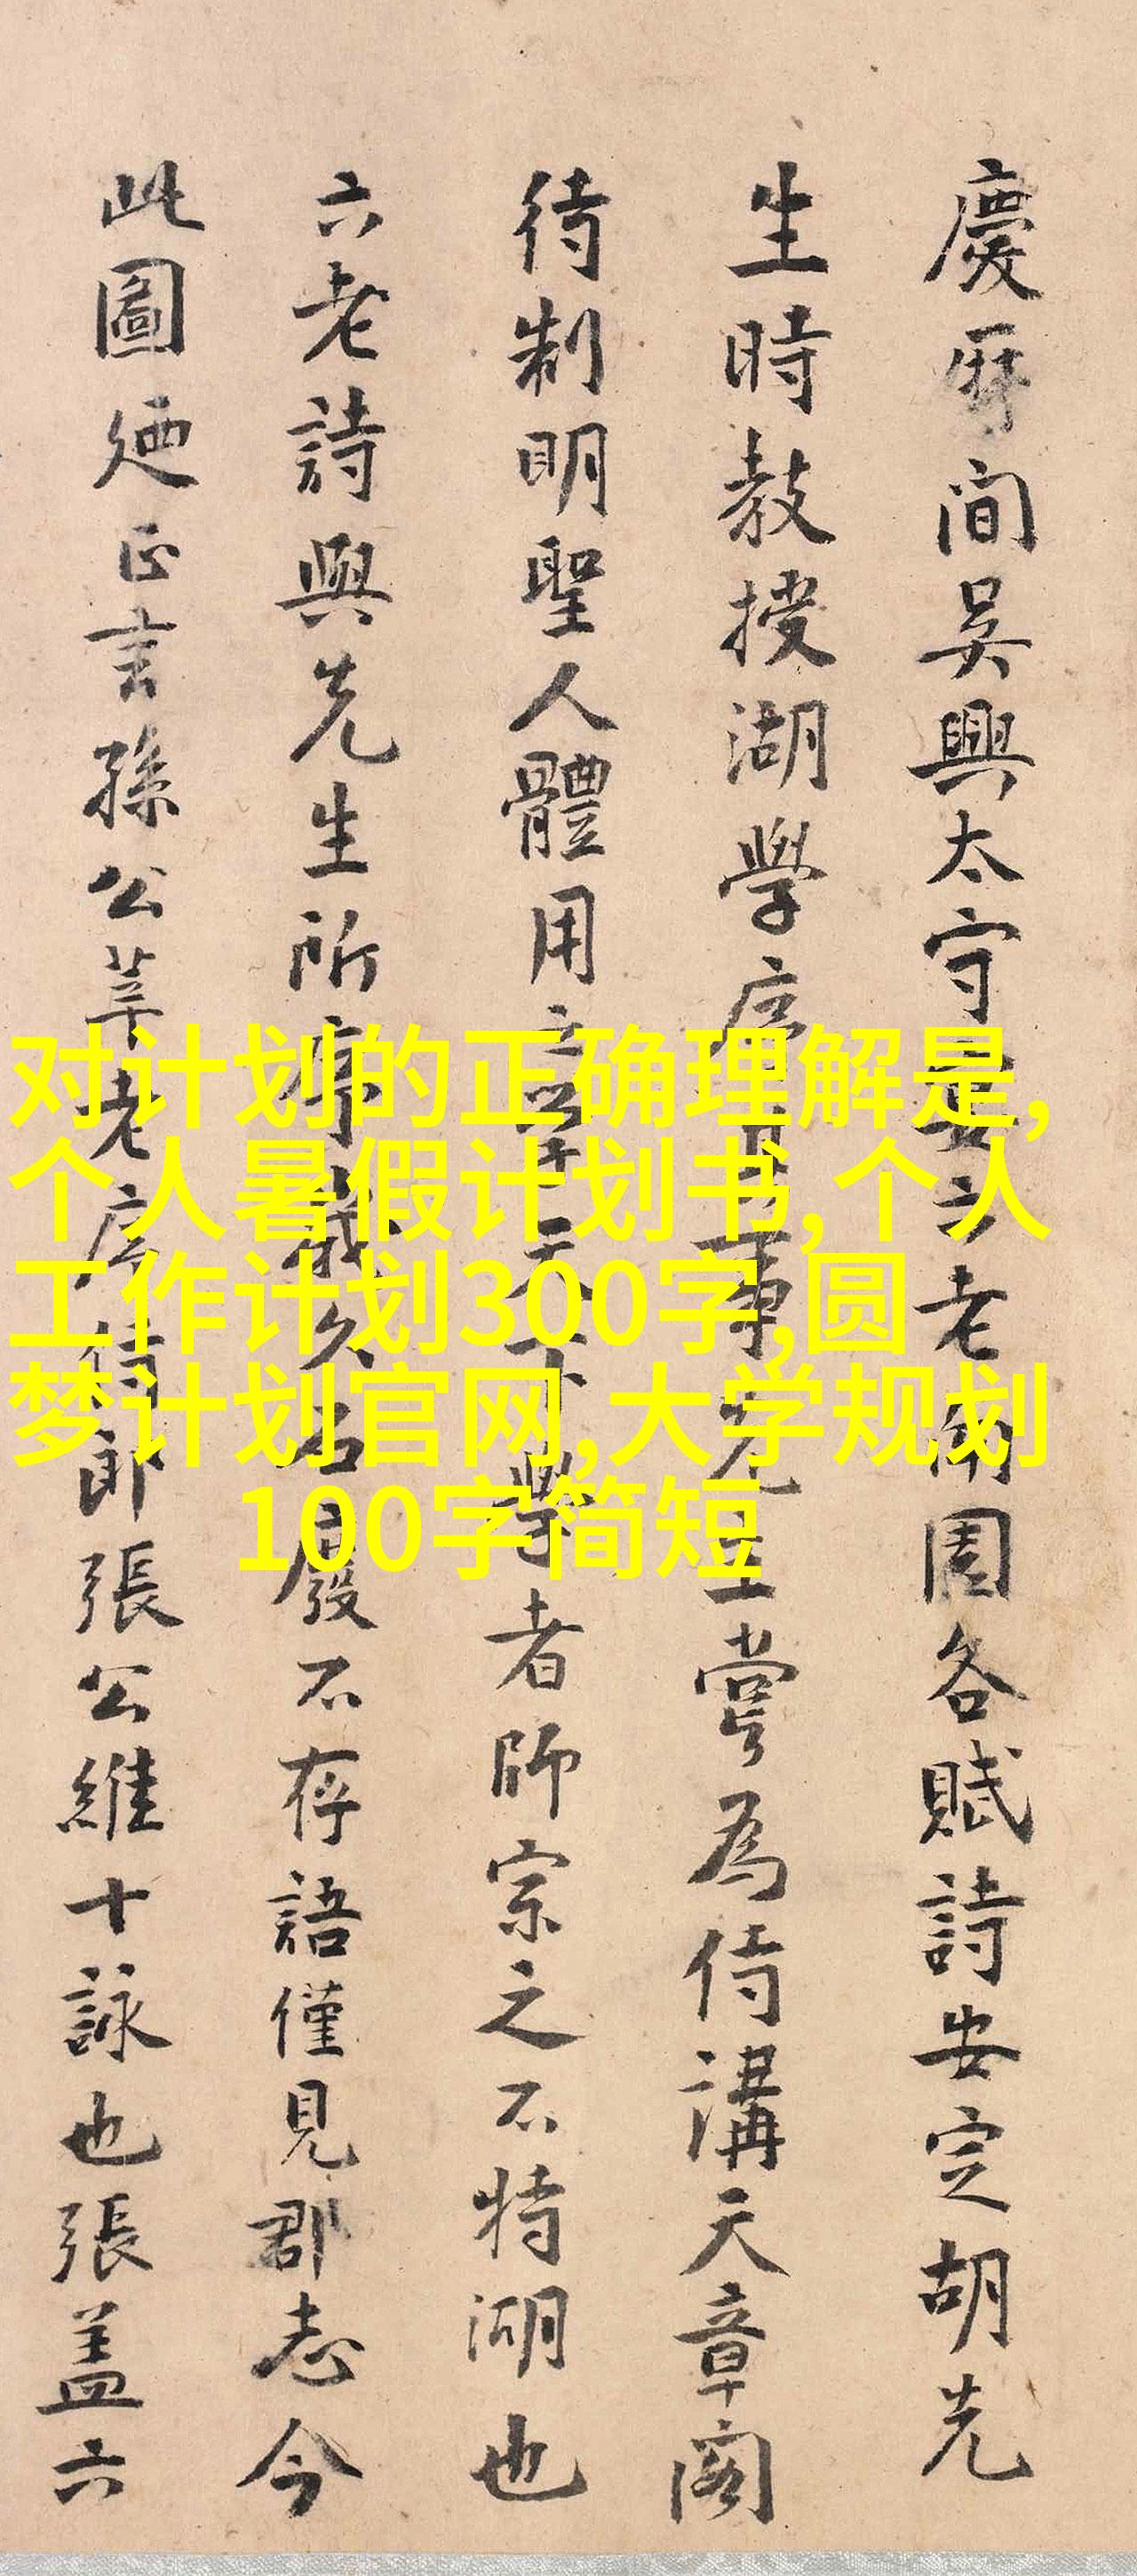 慶曆間吳興太守宴六老南園各賦詩安定胡先
生時教授湖學序其事先生嘗為侍講天章閣
待制明聖人體用之學天下學者師宗之不特湖也
六老詩與先生所序歲久石廢不存語僅見郡志今
此圖廼正言孫公莘老序侍郎張公維十詠也張蓋六
对计划的正确理解是,
个人暑假计划书,个人
工作计划300字,圆
梦计划官网,大学规划
100字简短